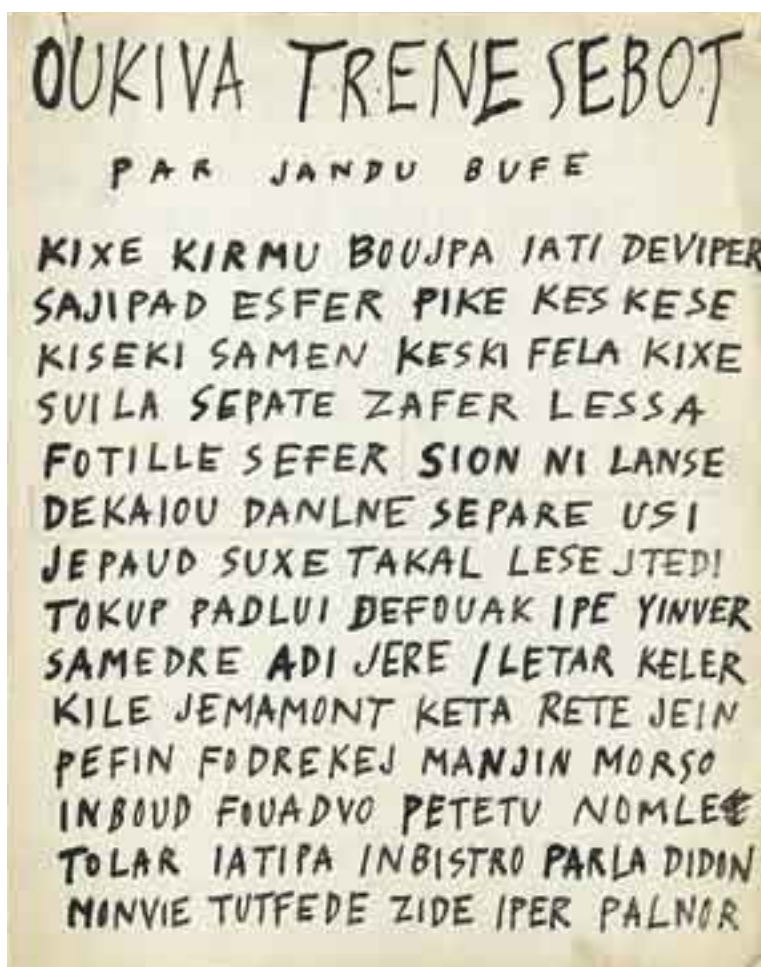 OUKIVA TRENE SEBOT
PAR JANDU BUFE
KIXE KIRMU BOUJPA IATI DEVIPER
SAJIPAD ESFER PIKE KES KESE
KISEKI SAMEN KESKI FELA KIXE
SUILA SEPATE ZAFER LESSA
FOTILLE SEFER SION NI LANSE
DEKAIOU DANLNE SEPARE USI
JEPAUD SUXE TAKAL LESE JTEDI
TOKUP PADLUI DEFOUAK IPE YINVER
SAMEDRE ADI JERE /LETAR KELER
KILE JEMAMONT KETA RETE JEIN
PEFIN FODREKEJ MANJIN MORSO
INBOUD FOUADVO PETETU NOMLE
TOLAR IATIPA INBISTRO PARLA DIDON
MONVIE TUTFEDE ZIDE IPER PALNOR